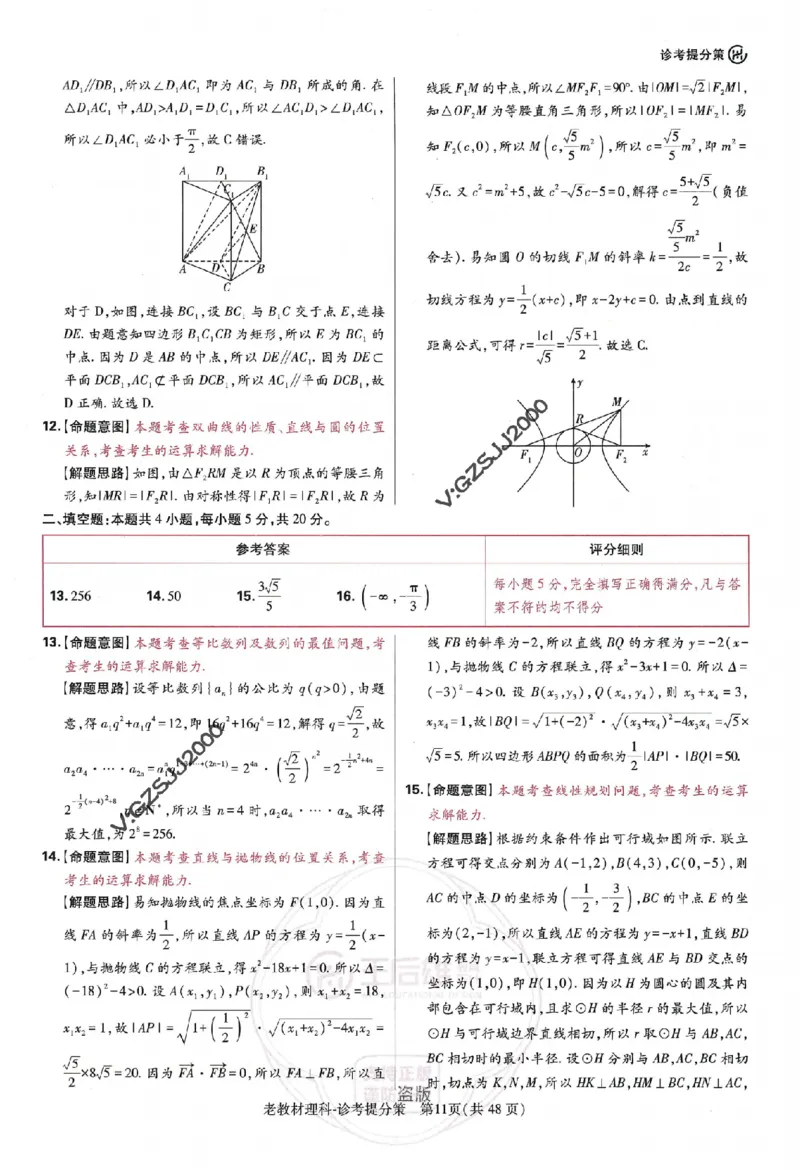 诊考提分策
AD₁∥DB₁,所以∠D₁AC₁ 即为 AC₁ 与 DB₁ 所成的角. 在
△D₁AC₁ 中,AD₁>A₁D₁=D₁C₁,所以∠AC₁D₁>∠D₁AC₁,
所以∠D₁AC₁ 必小于π/2,故 C 错误.
A₁ D₁ B₁
C₁
E
A D B
C
对于 D,如图,连接 BC₁,设 BC₁ 与 B₁C 交于点 E,连接
DE. 由题意知四边形 B₁C₁CB 为矩形,所以 E 为 BC₁ 的
中点. 因为 D 是 AB 的中点,所以 DE∥AC₁. 因为 DE⊂
平面 DCB₁,AC₁⊄平面 DCB₁,所以 AC₁∥平面 DCB₁,故
D 正确. 故选 D.
12.【命题意图】本题考查双曲线的性质、直线与圆的位置
关系,考查考生的运算求解能力.
【解题思路】如图,由△F₂RM 是以 R 为顶点的等腰三角
形,知|MR|=|F₂R|. 由对称性得|F₁R|=|F₂R|,故 R 为
线段 F₁M 的中点,所以∠MF₂F₁=90°. 由|OM|=√2|F₂M|,
知△OF₂M 为等腰直角三角形,所以|OF₂|=|MF₂|. 易
知 F₂(c,0),所以 M(c,√5/5 m²),所以 c=√5/5 m²,即 m²=
√5c. 又 c²=m²+5,故 c²-√5c-5=0,解得 c=(5+√5)/2(负值
舍去). 易知圆 O 的切线 F₁M 的斜率 k=(√5/5 m²)/2c=1/2,故
切线方程为 y=1/2(x+c),即 x-2y+c=0. 由点到直线的
距离公式,可得 r=|c|/√5=(√5+1)/2. 故选 C.
y
M
R
F₁ O F₂ x
V:GZSJJ2000
二、填空题:本题共 4 小题,每小题 5 分,共 20 分。
参考答案 评分细则
13. 256 14. 50 15. 3√5/5 16. (-∞,-π/3)
每小题 5 分,完全填写正确得满分,凡与答
案不符的均不得分
13.【命题意图】本题考查等比数列及数列的最值问题,考
查考生的运算求解能力.
【解题思路】设等比数列{aₙ}的公比为 q(q>0),由题
意,得 a₁q²+a₁q⁴=12,即 16q²+16q⁴=12,解得 q=√2/2,故
a₂a₄·…·a₂ₙ= =2⁴ⁿ·(√2/2)^(n²)=2^(-1/2 n²+4n)=
2^(-1/2(n-4)²+8) ,所以当 n=4 时,a₂a₄·…·a₂ₙ 取得
最大值,为 2⁸=256.
V:GZSJJ2000
14.【命题意图】本题考查直线与抛物线的位置关系,考查
考生的运算求解能力.
【解题思路】易知抛物线的焦点坐标为 F(1,0). 因为直
线 FA 的斜率为1/2,所以直线 AP 的方程为 y=1/2(x-
1),与抛物线 C 的方程联立,得 x²-18x+1=0. 所以 Δ=
(-18)²-4>0. 设 A(x₁,y₁),P(x₂,y₂),则 x₁+x₂=18,
x₁x₂=1,故|AP|=√(1+(1/2)²)·√((x₁+x₂)²-4x₁x₂)=
√5/2×8√5=20. 因为 FA·FB=0,所以 FA⊥FB,所以直
线 FB 的斜率为-2,所以直线 BQ 的方程为 y=-2(x-
1),与抛物线 C 的方程联立,得 x²-3x+1=0. 所以 Δ=
(-3)²-4>0. 设 B(x₃,y₃),Q(x₄,y₄),则 x₃+x₄=3,
x₃x₄=1,故|BQ|=√(1+(-2)²)·√((x₃+x₄)²-4x₃x₄)=√5×
√5=5. 所以四边形 ABPQ 的面积为1/2|AP|·|BQ|=50.
15.【命题意图】本题考查线性规划问题,考查考生的运算
求解能力.
【解题思路】根据约束条件作出可行域如图所示. 联立
方程可得交点分别为 A(-1,2),B(4,3),C(0,-5),则
AC 的中点 D 的坐标为(-1/2,-3/2),BC 的中点 E 的坐
标为(2,-1),所以直线 AE 的方程为 y=-x+1,直线 BD
的方程为 y=x-1,联立方程可得直线 AE 与 BD 交点的
坐标为(1,0),即 H(1,0). 因为以 H 为圆心的圆及其内
部包含在可行域内,且求⊙H 的半径 r 的最大值,所以
⊙H 与可行域边界直线相切,所以 r 取⊙H 与 AB,AC,
BC 相切时的最小半径. 设⊙H 分别与 AB,AC,BC 相切
时,切点为 K,N,M,所以 HK⊥AB,HM⊥BC,HN⊥AC,
王后雄
盗版
老教材理科-诊考提分策 第11页(共 48 页)